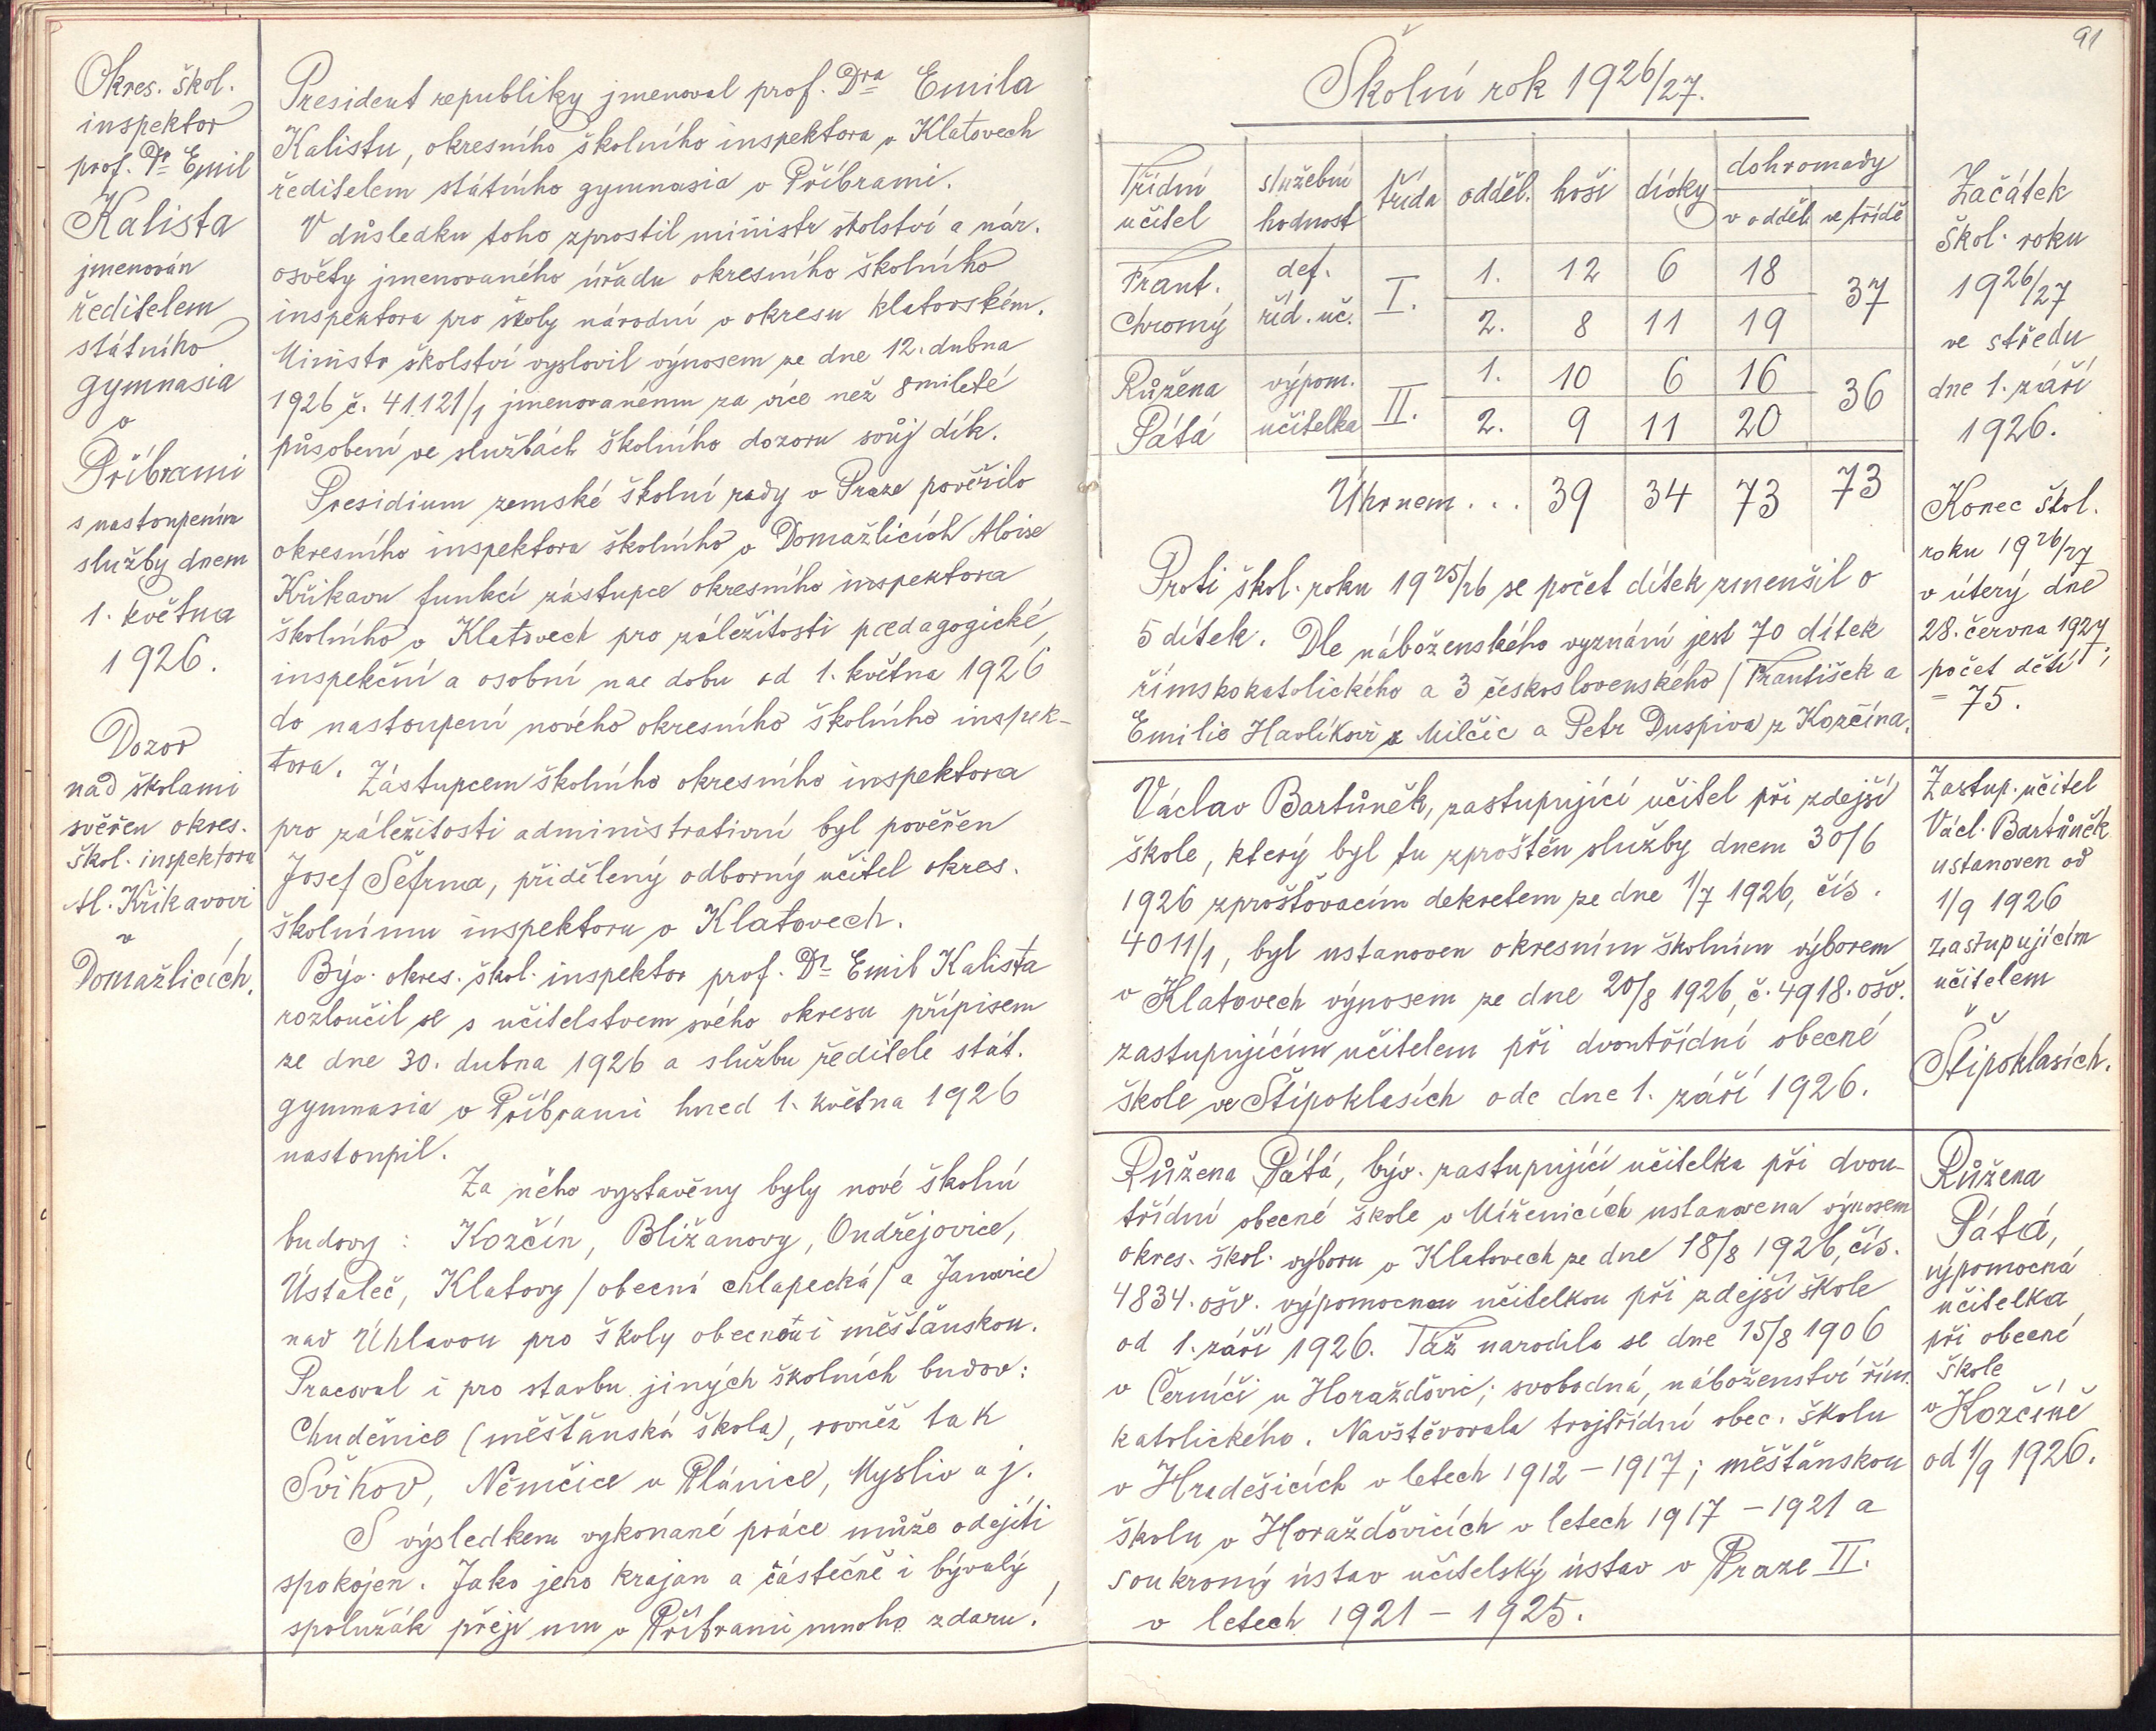 Okres. škol.
inspektor
prof. Dr Emil
Kalista
jmenován
ředitelem
státního
gymnasia
v
Příbrami
s nastoupením
služby dnem
1. května
1926.
Dozor
nad školami
svěřen okres.
škol. inspektoru
Al. Křikavovi
v
Domažlicích.
President republiky jmenoval prof. Dra Emila
Kalistu, okresního školního inspektora v Klatovech
ředitelem státního gymnasia v Příbrami.
V důsledku toho zprostil ministr školství a nár.
osvěty jmenovaného úřadu okresního školního
inspektora pro školy národní v okresu klatovském.
Ministr školství vyslovil výnosem ze dne 12. dubna
1926 č. 41.121/1 jmenovanému za více než 8mileté
působení ve službách školního dozoru svůj dík.
Presidium zemské školní rady v Praze pověřilo
okresního inspektora školního v Domažlicích Aloise
Křikavu funkcí zástupce okresního inspektora
školního v Klatovech pro záležitosti pædagogické,
inspekční a osobní na dobu od 1. května 1926
do nastoupení nového okresního školního inspek-
tora. Zástupcem školního okresního inspektora
pro záležitosti administrativní byl pověřen
Josef Šefrna, přidělený odborný učitel okres.
školnímu inspektoru v Klatovech.
Býv. okres. škol. inspektor prof. Dr Emil Kalista
rozloučil se s učitelstvem svého okresu přípisem
ze dne 30. dubna 1926 a službu ředitele stát.
gymnasia v Příbrami hned 1. května 1926
nastoupil.
Za něho vystavěny byly nové školní
budovy: Kozčín, Bližanovy, Ondřejovice,
Ústaleč, Klatovy /obecná chlapecká/ a Janovice
nad Úhlavou pro školy obecnou i měšťanskou.
Pracoval i pro stavbu jiných školních budov:
Chudenice (měšťanská škola), rovněž tak
Švihov, Němčice u Plánice, Mysliv a j.
S výsledkem vykonané práce může odejíti
spokojen. Jako jeho krajan a částečně i bývalý
spolužák přeji mu v Příbrami mnoho zdaru!
91
Školní rok 1926/27.
Třídní učitel | služební hodnost | třída | odděl. | hoši | dívky | dohromady
v odděl. | ve třídě
Frant. Chromý | def. říd. uč. | I. | 1. | 12 | 6 | 18 | 37
2. | 8 | 11 | 19
Růžena Pátá | výpom. učitelka | II. | 1. | 10 | 6 | 16 | 36
2. | 9 | 11 | 20
Úhrnem... | 39 | 34 | 73 | 73
Proti škol. roku 1925/26 se počet dítek zmenšil o
5 dítek. Dle náboženského vyznání jest 70 dítek
římskokatolického a 3 československého /František a
Emilie Havlíkovi z Milčic a Petr Duspiva z Kozčína.
Václav Bartůněk, zastupující učitel při zdejší
škole, který byl tu zproštěn služby dnem 30/6
1926 zprošťovacím dekretem ze dne 1/7 1926, čís.
4011/1, byl ustanoven okresním školním výborem
v Klatovech výnosem ze dne 20/8 1926, č. 4918. ošv.
zastupujícím učitelem při dvoutřídní obecné
škole ve Štipoklasích ode dne 1. září 1926.
Růžena Pátá, býv. zastupující učitelka při dvou-
třídní obecné škole v Míženicích ustanovena výnosem
okres. škol. výboru v Klatovech ze dne 18/8 1926, čís.
4834. ošv. výpomocnou učitelkou při zdejší škole
od 1. září 1926. Táž narodila se dne 15/8 1906
v Černíči u Horažďovic; svobodná, náboženství řím.
katolického. Navštěvovala trojtřídní obec. školu
v Hradešicích v letech 1912 – 1917; měšťanskou
školu v Horažďovicích v letech 1917 – 1921 a
soukromý ústav učitelský ústav v Praze II.
v letech 1921 – 1925.
Začátek
škol. roku
1926/27
ve středu
dne 1. září
1926.
Konec škol.
roku 1926/27
v úterý dne
28. června 1927;
počet dětí
= 75.
Zastup. učitel
Václ. Bartůněk
ustanoven od
1/9 1926
zastupujícím
učitelem
v
Štipoklasích.
Růžena
Pátá,
výpomocná
učitelka
při obecné
škole
v Kozčíně
od 1/9 1926.